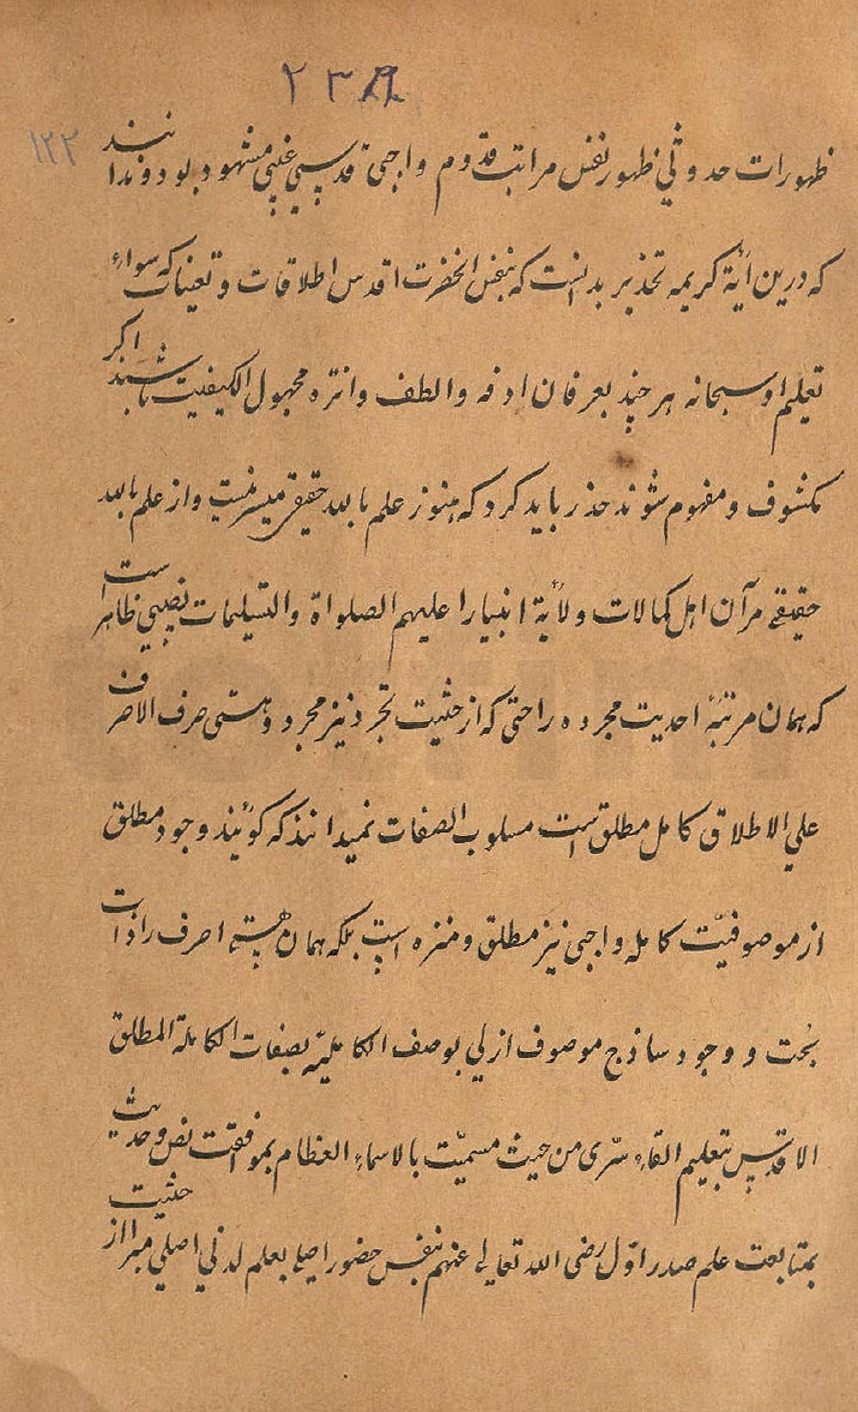 ۲۳۸
۱۲۲
ظهورات حدوثی ظهور نفس مراتب قدوم واجبی قدسی غیبی مشهود بود و ندانند
که درین آیة کریمه تحذیر بدانست که بنفس الحضرت اقدس اطلاقات و تعینات که سواء
تعلیم او سبحانه هر چند بعرفان ادق والطف وانزه مجهول الکیفیت باشند اگر
مکشوف و مفهوم شوند حذر باید کرد که هنوز علم بالله حقیقی میسر نیست واز علم بالله
حقیقی مرآن اهل کمالات ولایة انبیا را علیهم الصلواة والتسلیمات نصیبی ظاهر است
که همان مرتبۀ احدیت مجرده را حتی که از حیثیت تجرد نیز مجرد و هستی صرف الاصرف
علی الاطلاق کامل مطلق است مسلوب الصفات نمیدانند که گویند وجود مطلق
از موصوفیّت کامله واجبی نیز مطلق و منزه است بلکه همان هستی صرف را ذات
بحت و وجود ساذج موصوف ازلی بوصف الکاملیّه بصفات الکاملة المطلق
الاقدس بتعلیم القاء سرّی من حیث مسمیّت بالاسماء العظام بموافقت نص وحدیث
بمتابعت علم صدر اوّل رضی الله تعالی عنهم بنفس حضور اصلی بعلم لدنی اصلی مبرا از حیثیت